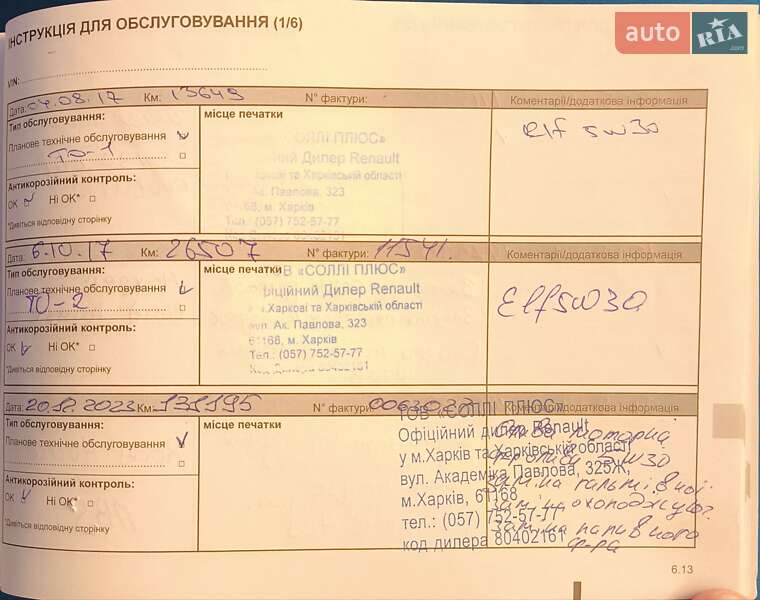 auto RIA.com
ІНСТРУКЦІЯ ДЛЯ ОБСЛУГОВУВАННЯ (1/6)
VIN:
Дата: 04.08.17 Км: 13649 N° фактури: Коментарі/додаткова інформація
Тип обслуговування:
Планове технічне обслуговування
ТО-1
Антикорозійний контроль:
OK Ні OK*
*Дивіться відповідну сторінку
місце печатки
СОЛЛІ ПЛЮС»
Дилер Renault
та Харківській області
Ак. Павлова, 323
м. Харків
Тел.: (057) 752-57-77
elf 5w30
Дата: 6.10.17 Км: 26507 N° фактури: 11541. Коментарі/додаткова інформація
Тип обслуговування:
Планове технічне обслуговування
ТО-2
Антикорозійний контроль:
OK Ні OK*
*Дивіться відповідну сторінку
місце печатки
ТОВ «СОЛЛІ ПЛЮС»
Офіційний Дилер Renault
м.Харкові та Харківській області
вул. Ак. Павлова, 323
61168, м. Харків
Тел.: (057) 752-57-77
Elf 5w30
Дата: 20.12.2023 Км: 131195 N° фактури: Коментарі/додаткова інформація
Тип обслуговування:
Планове технічне обслуговування
Антикорозійний контроль:
OK Ні OK*
*Дивіться відповідну сторінку
місце печатки
ТОВ «СОЛЛІ ПЛЮС»
Офіційний дилер Renault
у м.Харків та Харківській області
вул. Академіка Павлова, 325Ж,
м.Харків, 61168
тел.: (057) 752-57-77
код дилера 80402161
моторна
5W30
заміна гальмівної
заміна паливного
ф-ра
6.13